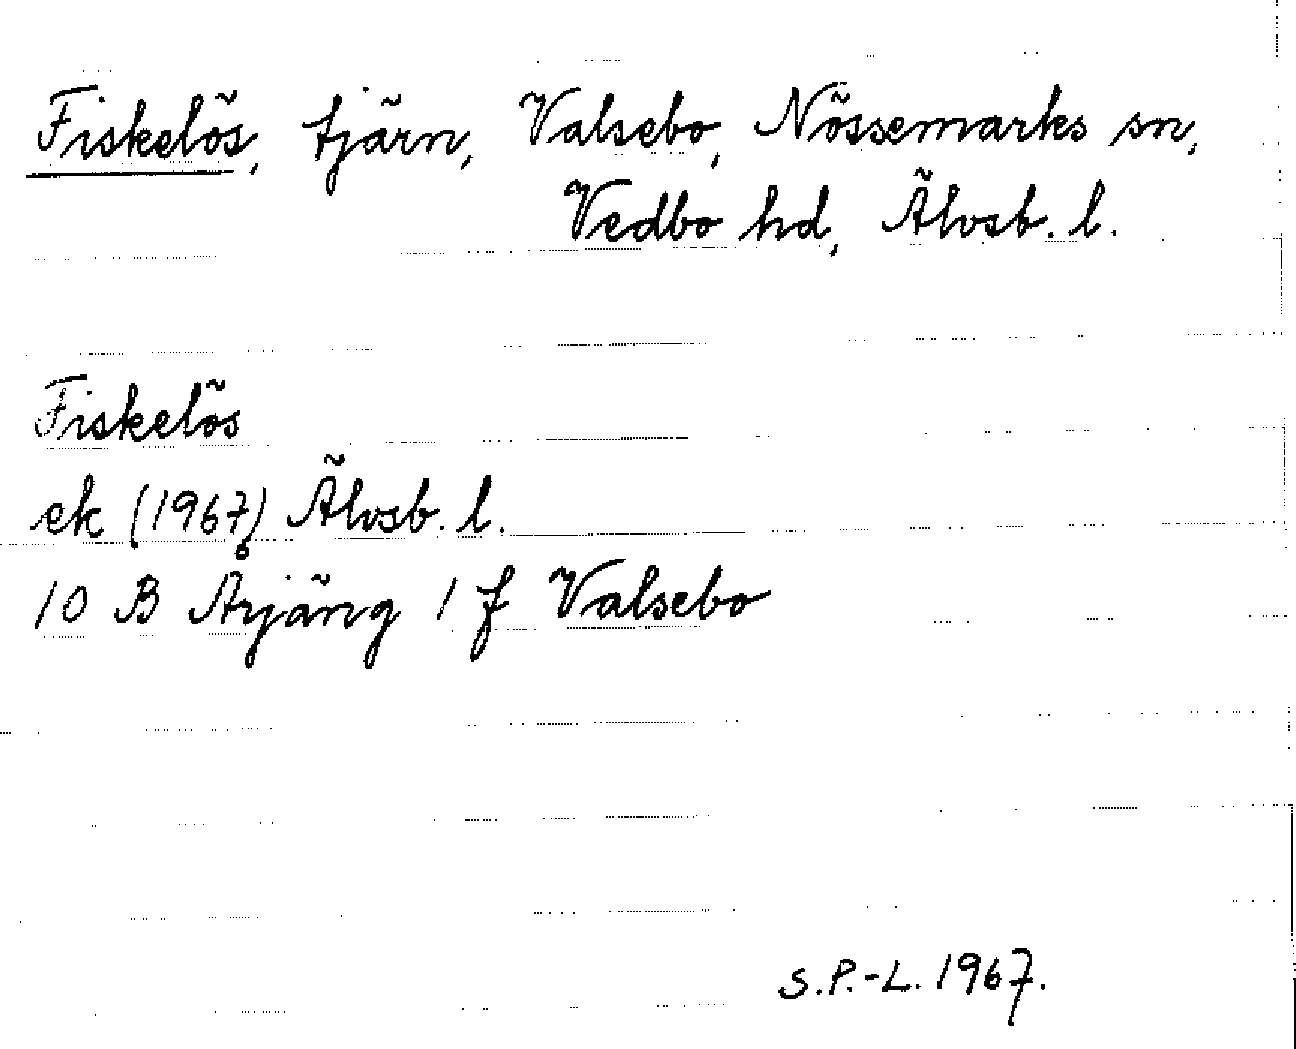 Fiskelös, tjärn, Valsebo, Nössemarks sn,
Vedbo hd, Älvsb. l.
Fiskelös
ek (1967) Älvsb. l.
10 B Årjäng 1 f Valsebo
S.P.-L. 1967.